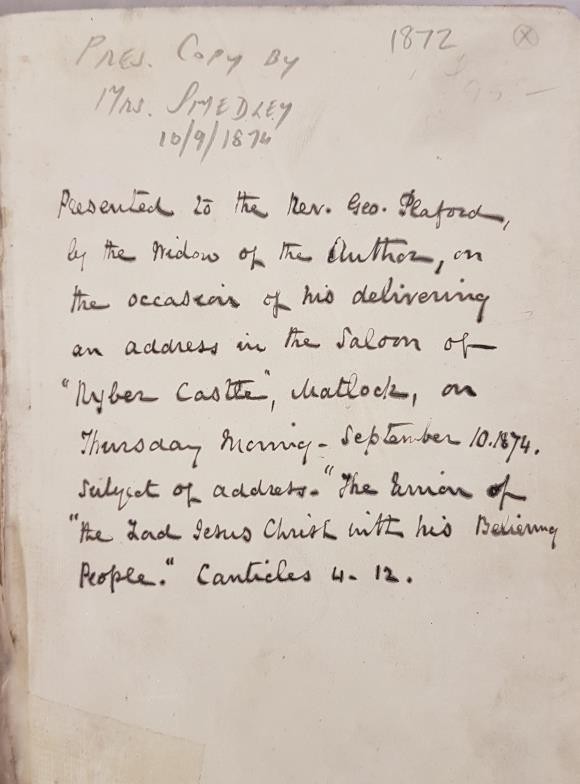 1872
PRES. COPY BY
MRS. SMEDLEY
10/9/1874
Presented to the Rev. Geo. Plaford,
by the Widow of the Author, on
the occasion of his delivering
an address in the Saloon of
"Ryber Castle", Matlock, on
Thursday Morning - September 10. 1874.
Subject of address - "The Union of
"the Lord Jesus Christ with his Believing
People." Canticles 4 - 12.